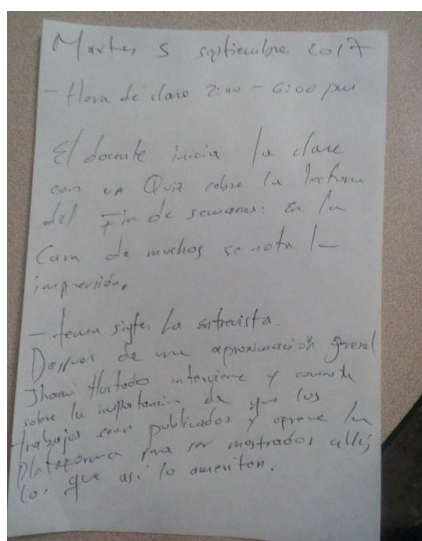 Martes 5 septiembre 2017
- Hora de clase 2:00 - 6:00 pm
El docente inicia la clase
con un Quiz sobre la lectura
del Fin de semana: En la
Cara de muchos se nota la
impresión.
- tema sigte. La entrevista.
Después de una aproximación general
Jhonn Hurtado interviene y comenta
sobre la importancia de que los
trabajos sean publicados y ofrece la
plataforma para ser mostrados allí
los que así lo ameriten.